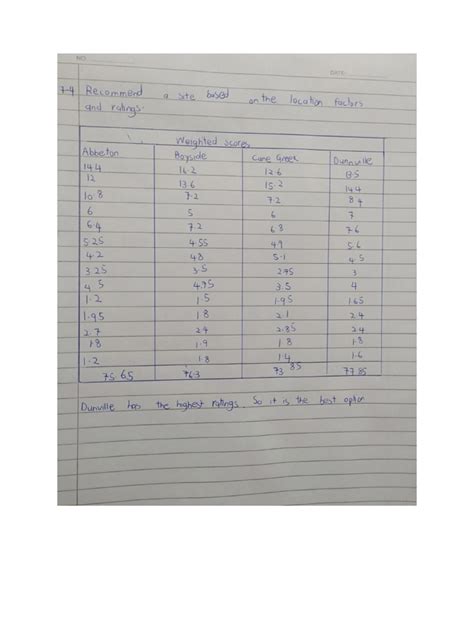 NO
DATE
7-4 Recommend a site based on the location factors
and ratings.
Weighted scores
Abbeton Bayside Cane Creek Dunnville
14.4 16.2 12.6
12 13.6 15.2 14.4
10.8 7.2 7.2 8.4
6 5 6 7
6.4 7.2 6.8 7.6
5.25 4.55 4.9 5.6
4.2 4.8 5.1 4.5
3.25 3.5 2.75 3
4.5 4.95 3.5 4
1.2 1.5 1.95 1.65
1.95 1.8 2.1 2.4
2.7 2.4 2.85 2.4
1.8 1.9 1.8 1.8
1.2 1.8 1.4 1.6
75.65 76.3 73.85 77.85
Dunnville has the highest ratings. So it is the best option